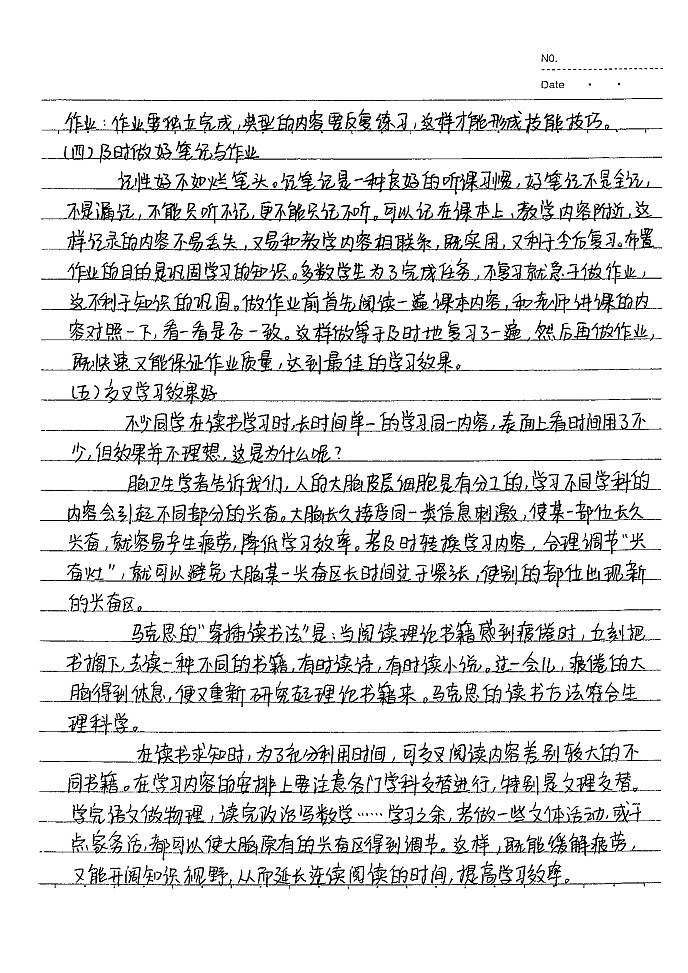 NO.
Date
作业：作业要独立完成，典型的内容要反复练习，这样才能形成技能技巧。
（四）及时做好笔记与作业
记性好不如烂笔头。记笔记是一种良好的听课习惯，好笔记不是全记，
不是漏记，不能只听不记，更不能只记不听。可以记在课本上、教学内容附近，这
样记录的内容不易丢失，又易和教学内容相联系，既实用，又利于今后复习。布置
作业的目的是巩固学习的知识。多数学生为了完成任务，不复习就急于做作业，
这不利于知识的巩固。做作业前首先阅读一遍课本内容，和老师讲课的内
容对照一下，看一看是否一致。这样做等于及时地复习了一遍，然后再做作业，
既快速又能保证作业质量，达到最佳的学习效果。
（五）交叉学习效果好
不少同学在读书学习时，长时间单一的学习同一内容，表面上看时间用了不
少，但效果并不理想，这是为什么呢？
脑卫生学者告诉我们，人的大脑皮层细胞是有分工的，学习不同学科的
内容会引起不同部分的兴奋。大脑长久接受同一类信息刺激，使某一部位长久
兴奋，就容易产生疲劳，降低学习效率。若及时转换学习内容，合理调节“兴
奋灶”，就可以避免大脑某一兴奋区长时间过于紧张，使别的部位出现新
的兴奋区。
马克思的“穿插读书法”是：当阅读理论书籍感到疲倦时，立刻把
书搁下，去读一种不同的书籍，有时读诗，有时读小说。过一会儿，疲倦的大
脑得到休息，便又重新研究起理论书籍来。马克思的读书方法符合生
理科学。
在读书求知时，为了充分利用时间，可交叉阅读内容差别较大的不
同书籍。在学习内容的安排上要注意各门学科交替进行，特别是文理交替。
学完语文做物理，读完政治写数学……学习之余，若做一些文体活动，或干
点家务活，都可以使大脑原有的兴奋区得到调节。这样，既能缓解疲劳，
又能开阔知识视野，从而延长连续阅读的时间，提高学习效率。